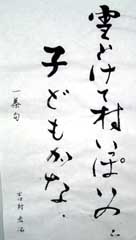 雪とけて村いっぱいの
子どもかな
一茶句